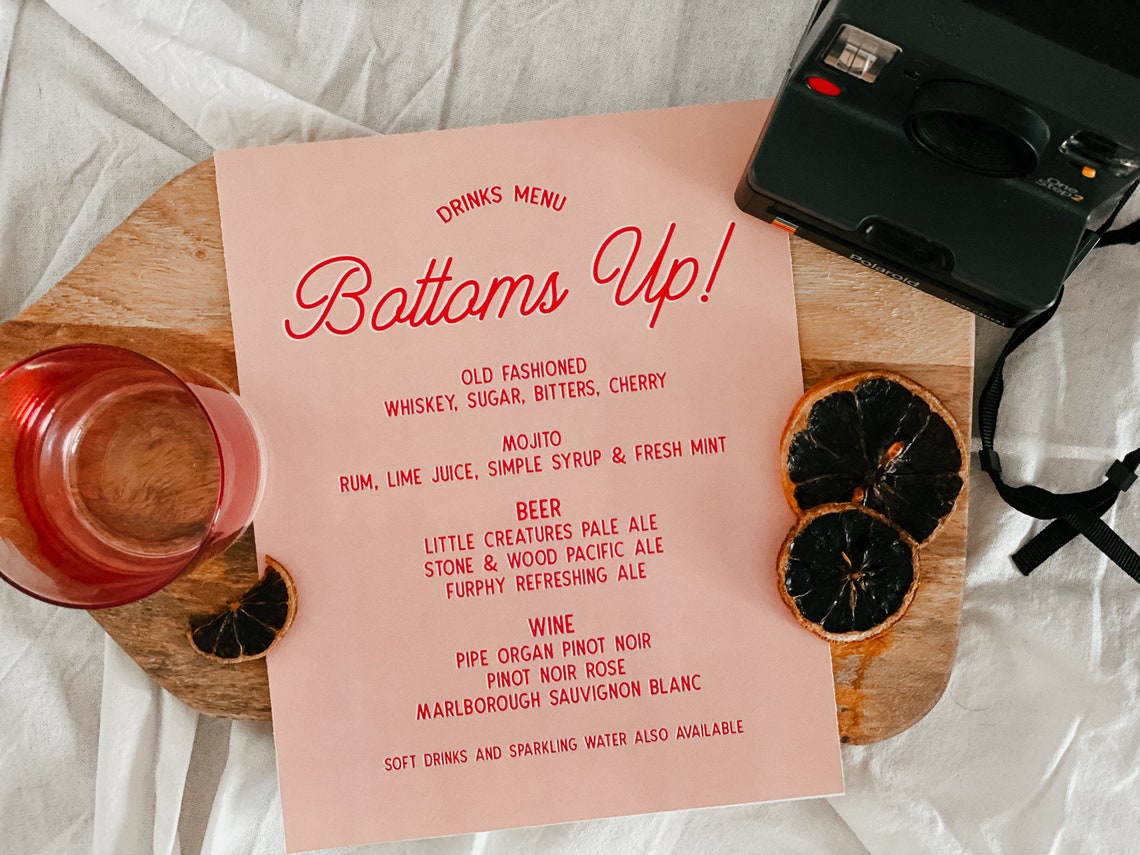 DRINKS MENU
Bottoms Up!
OLD FASHIONED
WHISKEY, SUGAR, BITTERS, CHERRY
MOJITO
RUM, LIME JUICE, SIMPLE SYRUP & FRESH MINT
BEER
LITTLE CREATURES PALE ALE
STONE & WOOD PACIFIC ALE
FURPHY REFRESHING ALE
WINE
PIPE ORGAN PINOT NOIR
PINOT NOIR ROSE
MARLBOROUGH SAUVIGNON BLANC
SOFT DRINKS AND SPARKLING WATER ALSO AVAILABLE
One
Step2
Polaroid